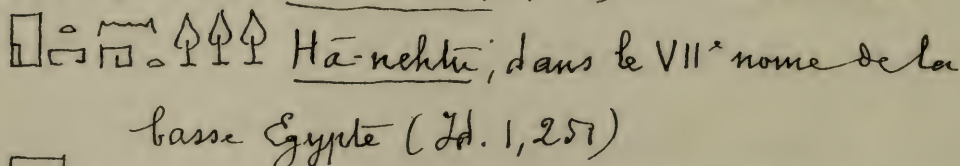 𓉗𓏏𓉐𓈖𓉔𓏏𓆭𓆭𓆭 Hā-nehtū; dans le VIIe nome de la
basse Egypte (Id. 1, 251)